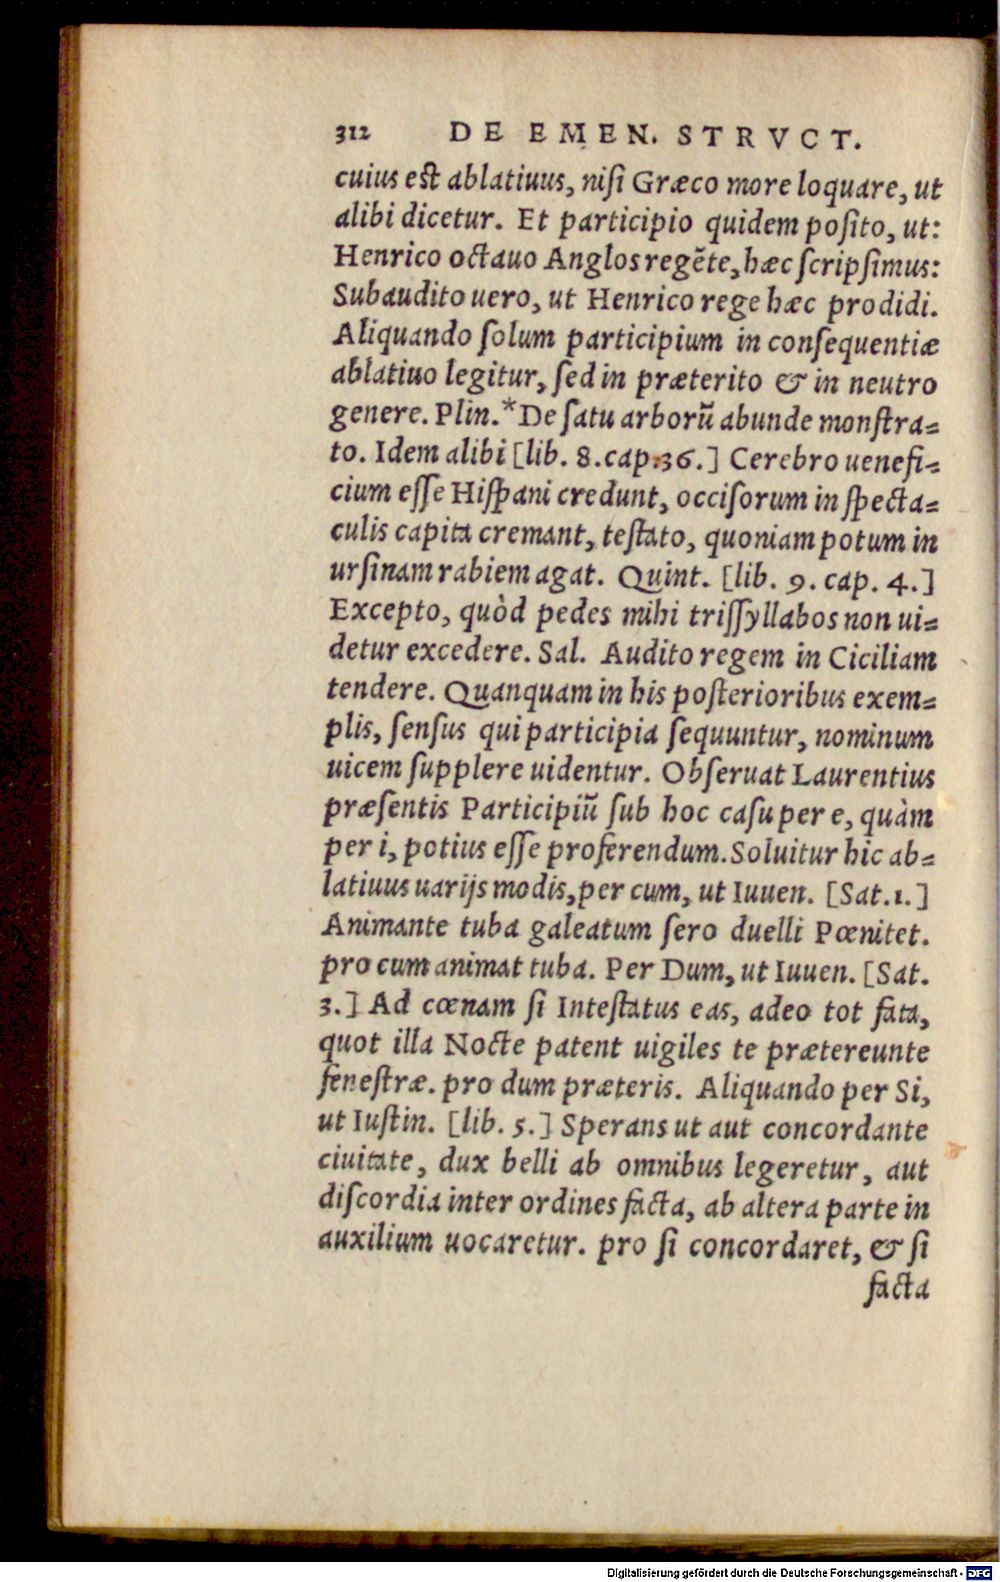 312 DE EMEN. STRVCT.
cuius est ablatiuus, nisi Græco more loquare, ut
alibi dicetur. Et participio quidem posito, ut:
Henrico octauo Anglos regẽte, hæc scripsimus:
Subaudito uero, ut Henrico rege hæc prodidi.
Aliquando solum participium in consequentiæ
ablatiuo legitur, sed in præterito & in neutro
genere. Plin.* De satu arborũ abunde monstra=
to. Idem alibi [lib. 8. cap. 36.] Cerebro uenefi=
cium esse Hispani credunt, occisorum in specta=
culis capita cremant, testato, quoniam potum in
ursinam rabiem agat. Quint. [lib. 9. cap. 4.]
Excepto, quòd pedes mihi trissyllabos non ui=
detur excedere. Sal. Audito regem in Ciciliam
tendere. Quanquam in his posterioribus exem=
plis, sensus qui participia sequuntur, nominum
uicem supplere uidentur. Obseruat Laurentius
præsentis Participiũ sub hoc casu per e, quàm
per i, potius esse proferendum. Soluitur hic ab=
latiuus uarijs modis, per cum, ut Iuuen. [Sat. 1.]
Animante tuba galeatum sero duelli Pœnitet.
pro cum animat tuba. Per Dum, ut Iuuen. [Sat.
3.] Ad cœnam si Intestatus eas, adeo tot fata,
quot illa Nocte patent uigiles te prætereunte
fenestræ. pro dum præteris. Aliquando per Si,
ut Iustin. [lib. 5.] Sperans ut aut concordante
ciuitate, dux belli ab omnibus legeretur, aut
discordia inter ordines facta, ab altera parte in
auxilium uocaretur. pro si concordaret, & si
facta
Digitalisierung gefördert durch die Deutsche Forschungsgemeinschaft - DFG